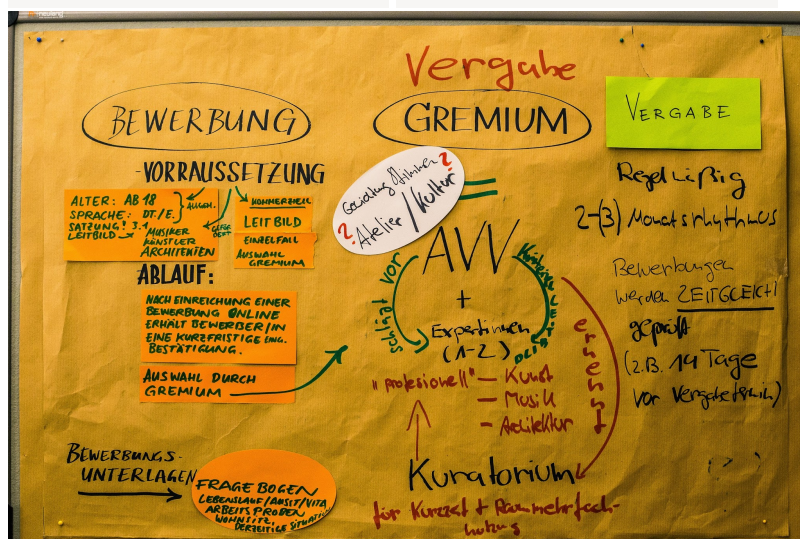 Vergabe
BEWERBUNG
-VORRAUSSETZUNG
ALTER: AB 18
SPRACHE: DT./E.
SATZUNG! 3.1
LEITBILD → MUSIKER
KÜNSTLER
ARCHITEKTEN
ALLGEM.
KOMMERZIELL
LEITBILD
EINZELFALL
AUSWAHL
GREMIUM
ABLAUF:
NACH EINREICHUNG EINER
BEWERBUNG ONLINE
ERHÄLT BEWERBER/IN
EINE KURZFRISTIGE ENG.
BESTÄTIGUNG.
AUSWAHL DURCH
GREMIUM
BEWERBUNGS-
UNTERLAGEN
FRAGE BOGEN
LEBENSLAUF/AUSIT/VITA
ARBEITS PROBEN
WOHNSITZ,
DERZEITIGE SITUATION
GREMIUM
?
? Atelier / Kultur
AVV
+
Expertinnen
(1-2)
schlägt vor
ernennt
"profesionell" — Kunst
— Musik
— Architektur
Kuratorium
für Kurzzeit + Raummehrfach-
nutzung
VERGABE
Regelmäßig
2-(3) Monatsrhythmus
Bewerbungen
werden ZEITGLEICH!
geprüft
(z.B. 14 Tage
vor Vergabetermin)